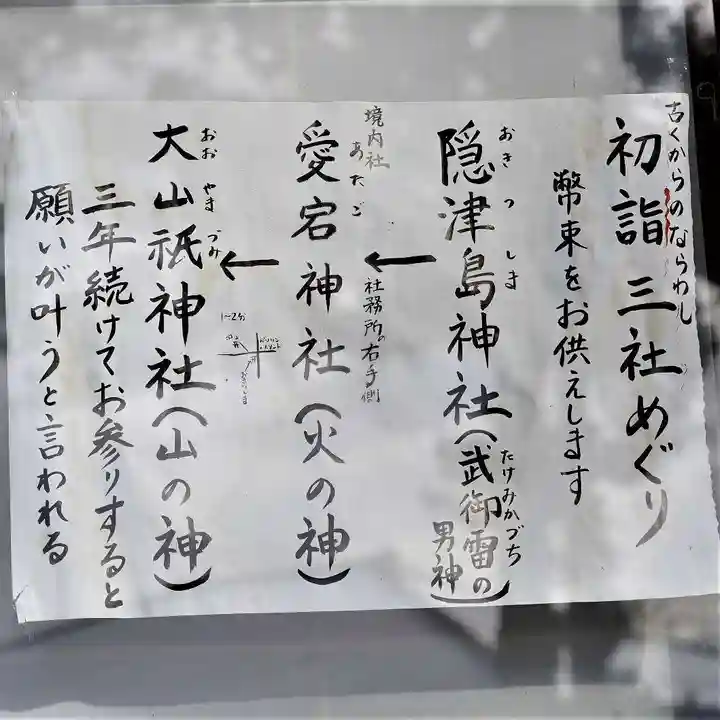 古くからのならわし
初詣 三社めぐり
幣束をお供えします
おきつしま
隠津島神社(武御雷の男神)
たけみかづち
境内社
社務所の右手側
あたご
愛宕神社(火の神)
1~2分
おおやまづみ
大山祇神社(山の神)
三年続けてお参りすると
願いが叶うと言われる